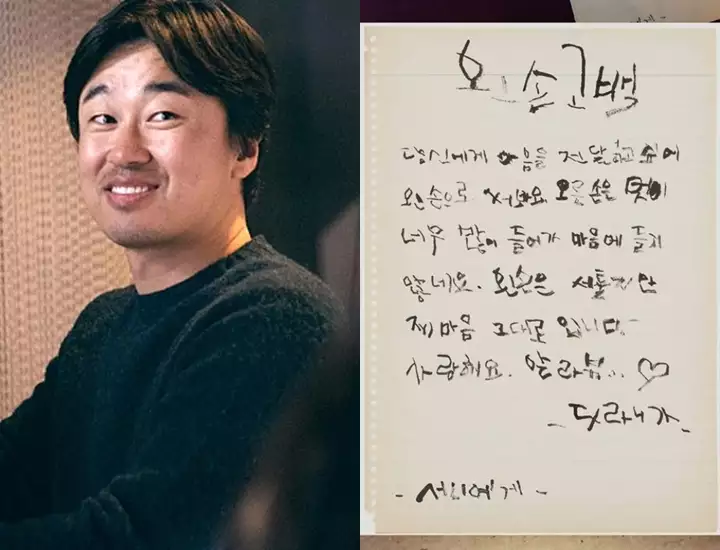 왼손고백
당신에게 마음을 전달하고 싶어
왼손으로 써봐요 오른손은 멋이
너무 많이 들어가 마음에 들지
않네요. 왼손은 서툴지만
제마음 그대로 입니다
사랑해요. 알라뷰... ♡
- 도라니가 -
- 서니에게 -